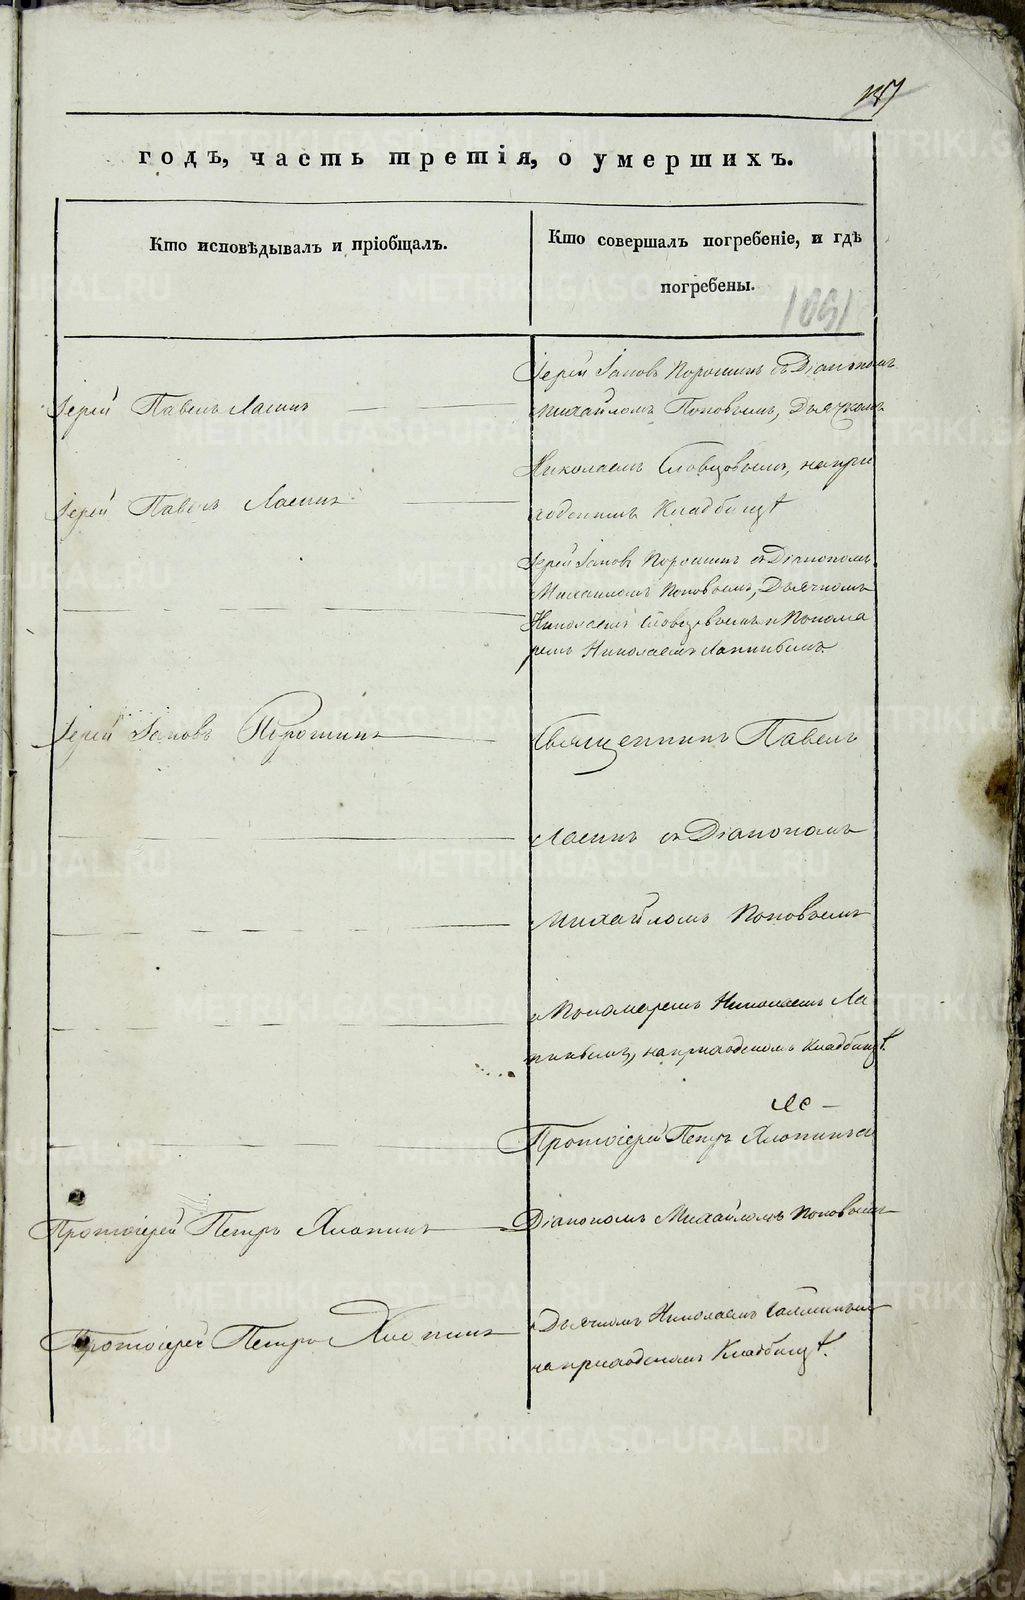 годъ, часть третія, о умершихъ.
Кто исповѣдывалъ и пріобщалъ.
Кто совершалъ погребеніе, и гдѣ
погребены.
1051
Іерей Іаковъ Порошинъ съ Діакономъ
Іерей Павелъ Ласинъ
Михайломъ Поповымъ, Дьячкомъ
Николаемъ Словцовымъ, на при
Іерей Павелъ Ласинъ
ходскомъ Кладбищѣ
Іерей Іаковъ Порошинъ съ Діакономъ
Михаиломъ Поповымъ, Дьячкомъ
Николаемъ Словцовымъ и Понома
ремъ Николаемъ
Іерей Іаковъ Порошинъ
Священникъ Павелъ
Ласинъ съ Діакономъ
Михайломъ Поповымъ
и Пономаремъ Николаемъ Ла
на приходскомъ Кладбищѣ.
Протоіерей Петръ Хлопинъ съ
Протоіерей Петръ Хлопинъ
Діакономъ Михайломъ Поповымъ
и Дьячкомъ Николаемъ
Протоіерей Петръ Хлопинъ
на приходскомъ Кладбищѣ.
METRIKI.GASO-URAL.RU